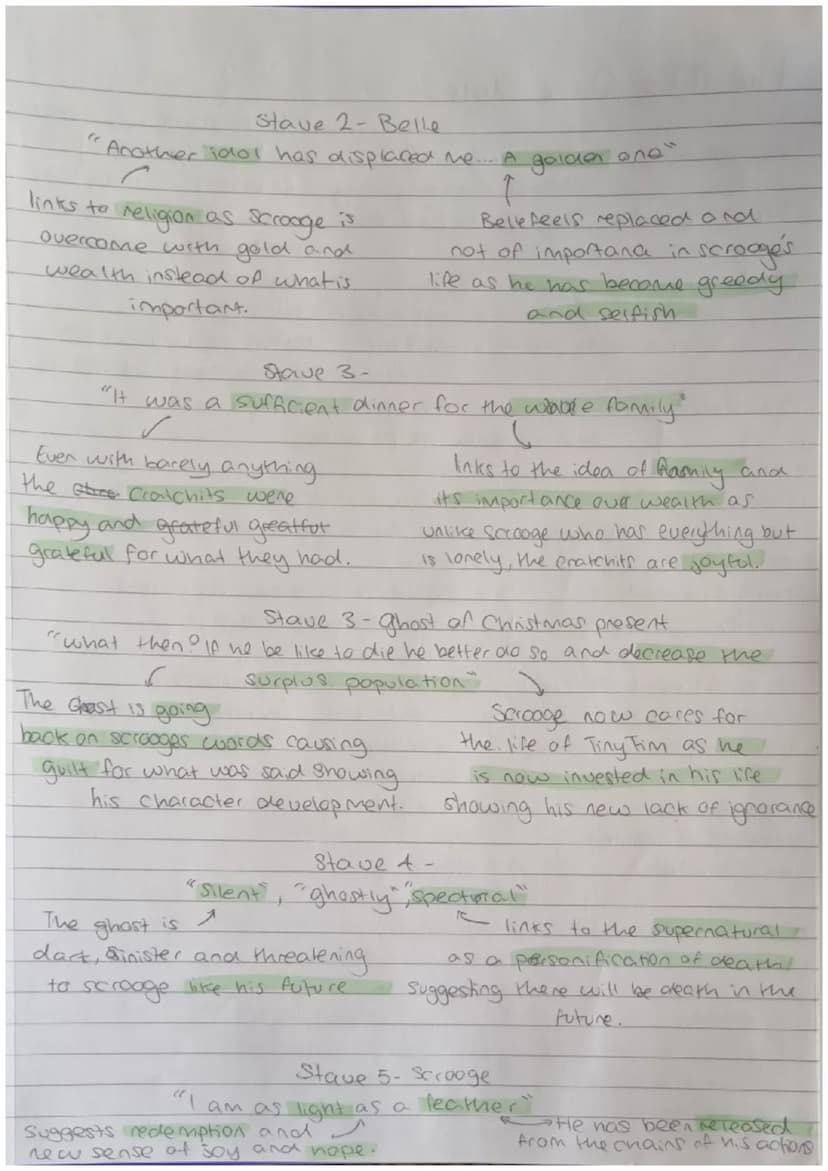 Stave 2 - Belle
"Another idol has displaced me... A golden one"
links to religion as scrooge is
overcome with gold and
wealth instead of what is
important.
Belle feels replaced and
not of importance in scrooge's
life as he has become greedy
and selfish
Stave 3 -
"It was a sufficient dinner for the whole family"
Even with barely anything
the Cratchits were
happy and grateful greatfut
grateful for what they had.
links to the idea of family and
its importance over wealth as
unlike scrooge who has everything but
is lonely, the cratchits are joyful.
Stave 3 - Ghost of Christmas present
"what then? If he be like to die he better do so and decrease the
surplus population"
The Ghost is going
back on scrooges words causing
guilt for what was said showing
his character development.
Scrooge now cares for
the life of Tiny Tim as he
is now invested in his life
showing his new lack of ignorance
Stave 4 -
"Silent", "ghostly", "spectural"
The ghost is
dark, sinister and threatening
to scrooge like his future
links to the supernatural
as a personification of death
suggesting there will be death in the
future.
Stave 5 - Scrooge
"I am as light as a feather"
suggests redemption and
new sense of joy and hope.
He has been released
from the chains of his actions